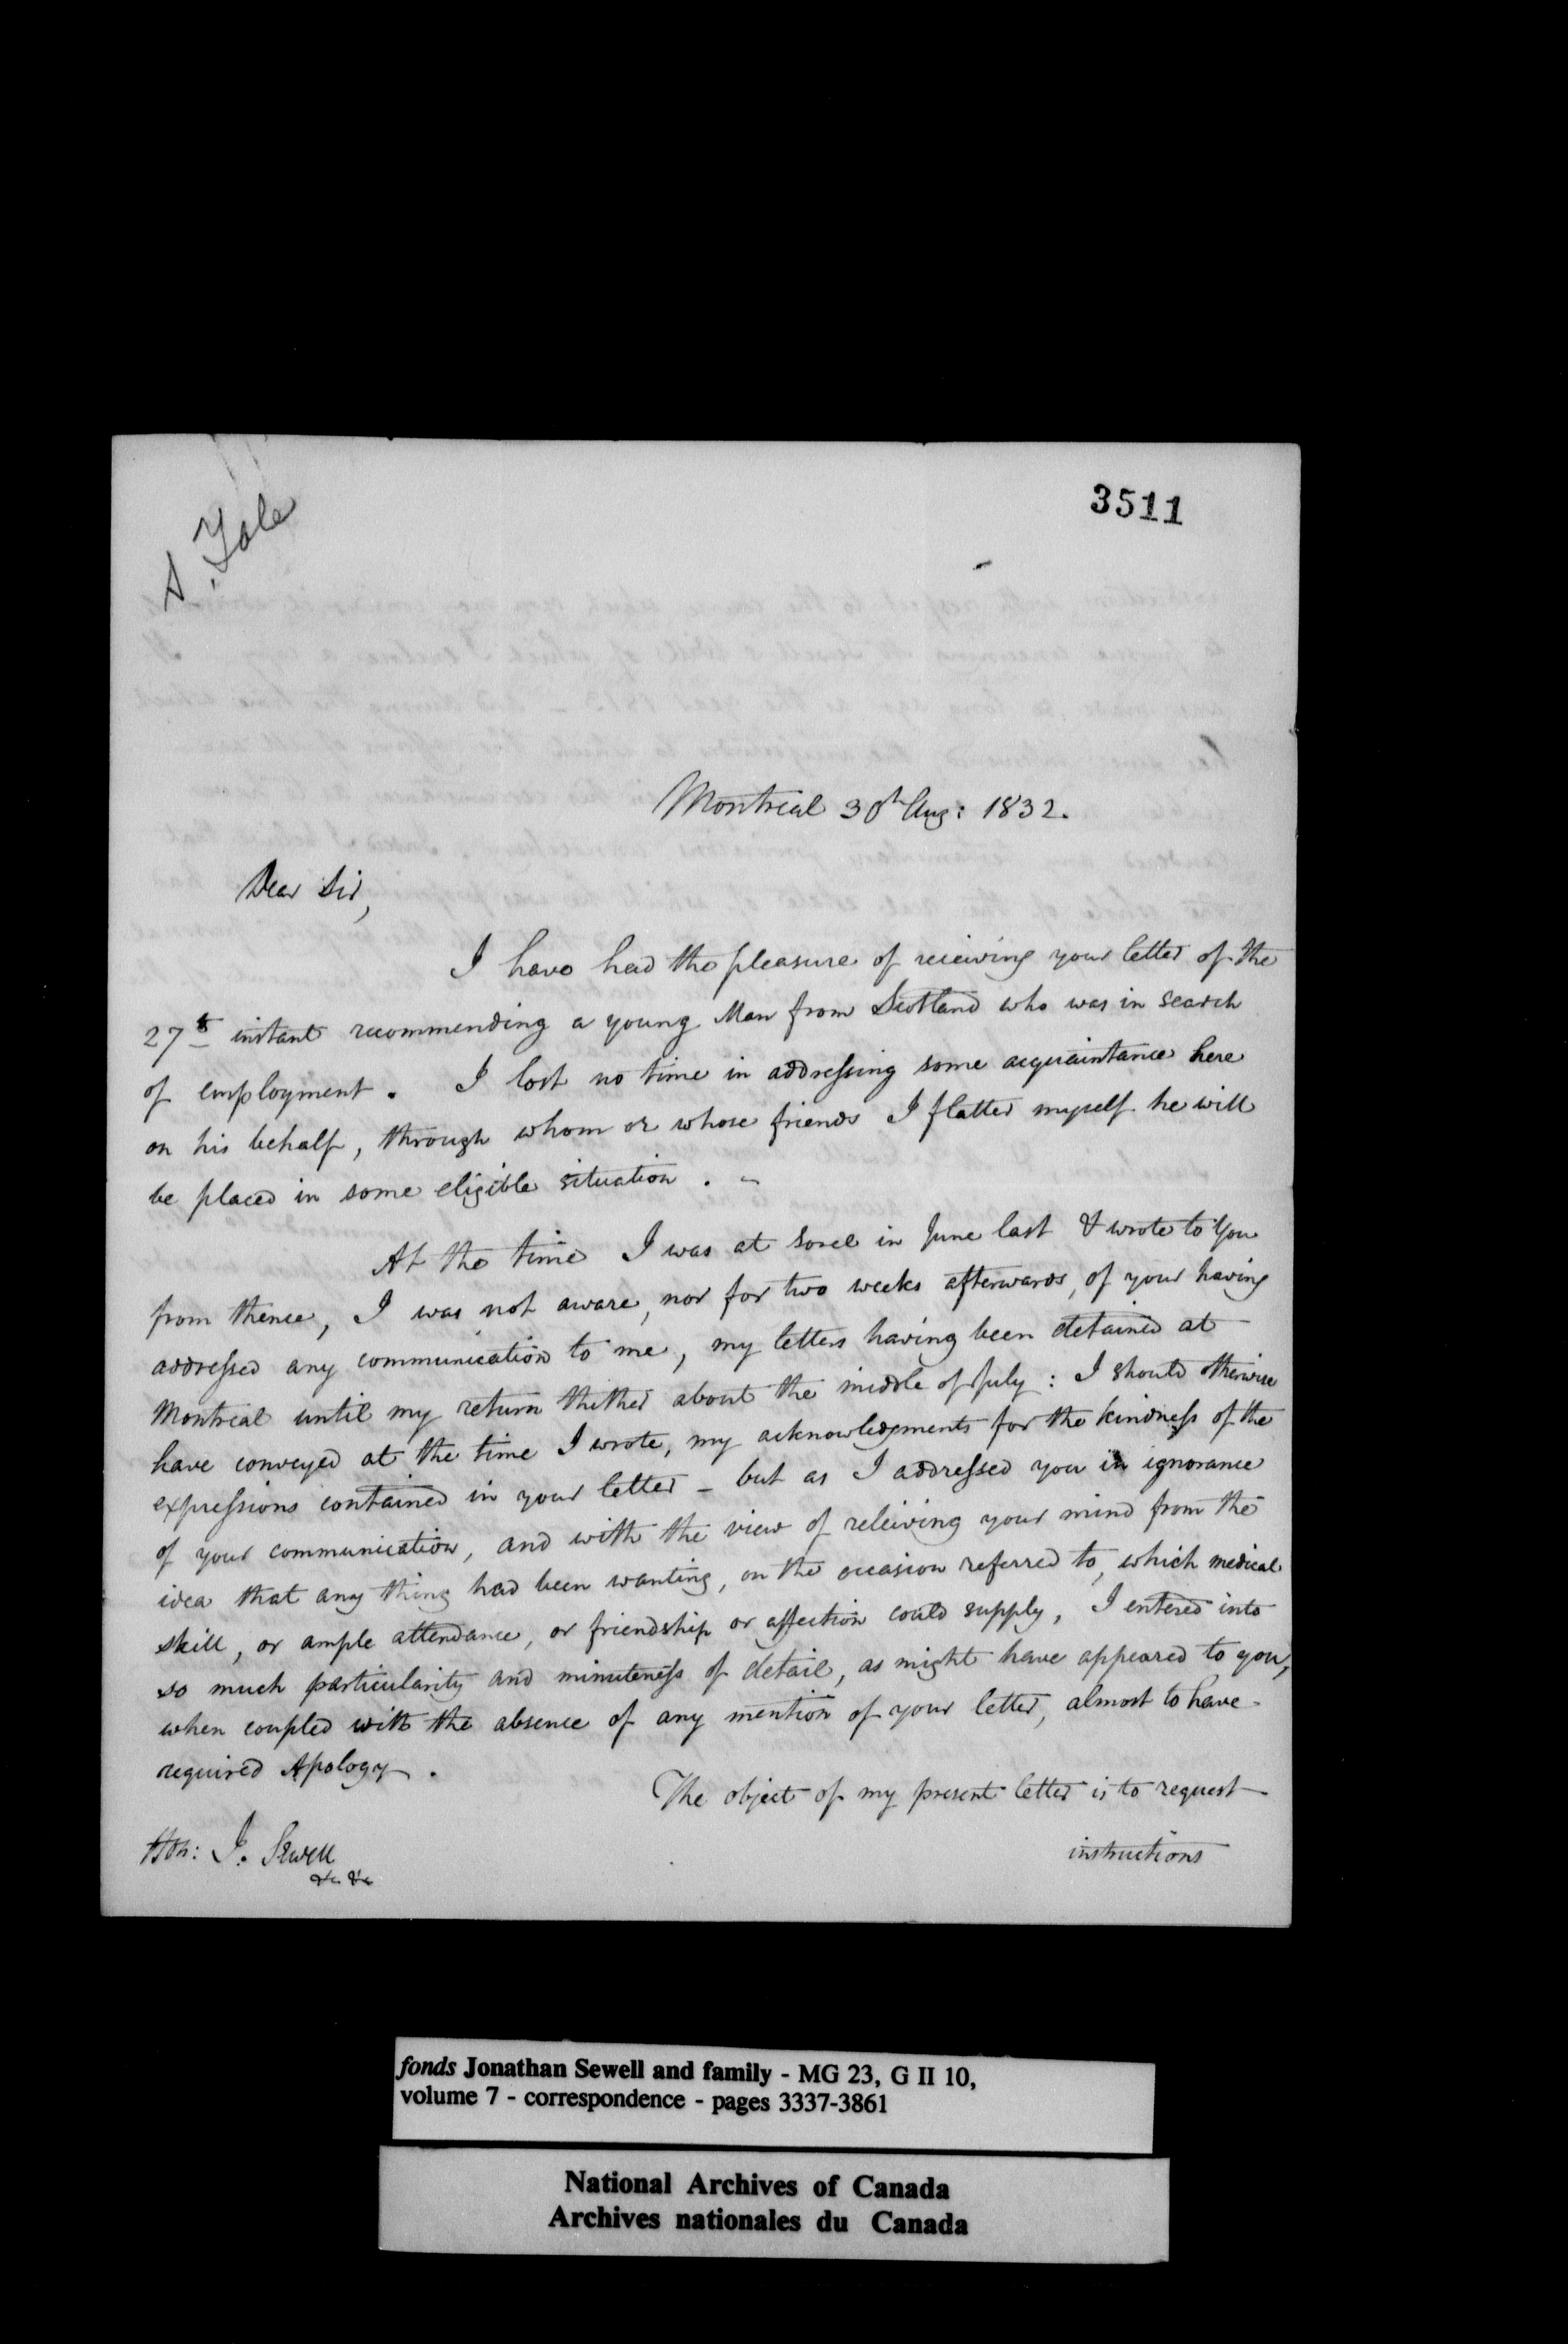 S. Yale
3511
Montreal 30th Aug: 1832.
Dear Sir,
I have had the pleasure of receiving your letter of the
27th instant recommending a young Man from Scotland who was in search
of employment. I lost no time in addressing some acquaintance here
on his behalf, through whom or whose friends I flatter myself he will
be placed in some eligible situation. –
At the time I was at Sorel in June last & wrote to You
from thence, I was not aware, nor for two weeks afterwards, of your having
addressed any communication to me, my letters having been detained at
Montreal until my return thither about the middle of July: I should otherwise
have conveyed at the time I wrote, my acknowledgments for the kindness of the
expressions contained in your letter – but as I addressed you in ignorance
of your communication, and with the view of releiving your mind from the
idea that any thing had been wanting, on the occasion referred to, which medical
skill, or ample attendance, or friendship or affection could supply, I entered into
so much particularity and minuteness of detail, as might have appeared to you,
when coupled with the absence of any mention of your letter, almost to have
required Apology.
The object of my present letter is to request
instructions
Hon: J. Sewell
&c &c
fonds Jonathan Sewell and family - MG 23, G II 10,
volume 7 - correspondence - pages 3337-3861
National Archives of Canada
Archives nationales du Canada